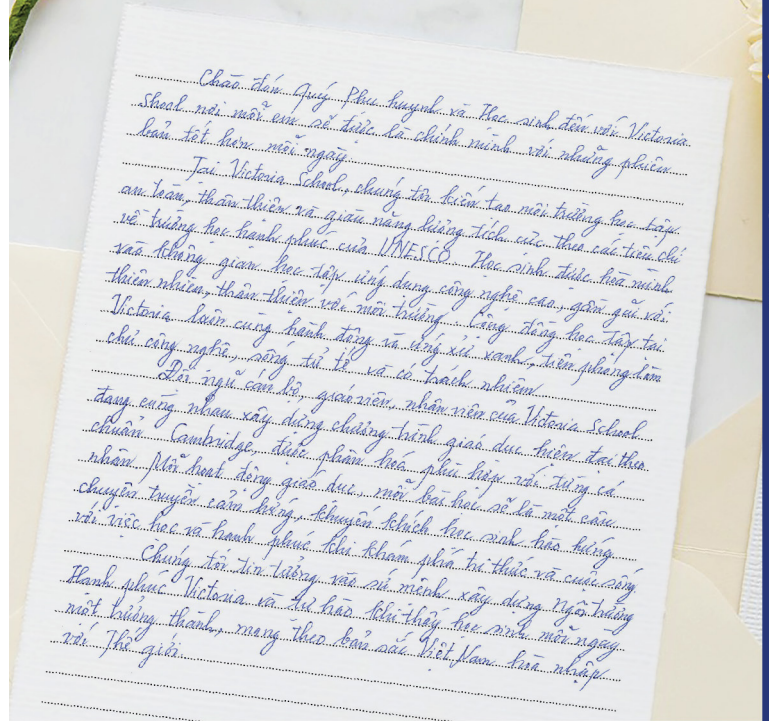 Chào đón Quý Phụ huynh và Học sinh đến với Victoria
Shool nơi mỗi em sẽ được là chính mình với những phiên
bản tốt hơn mỗi ngày.
Tại Victoria School, chúng tôi kiến tạo môi trường học tập
an toàn, thân thiện và giàu năng lượng tích cực theo các tiêu chí
về trường học hạnh phúc của UNESCO. Học sinh được hòa mình
vào không gian học tập ứng dụng công nghệ cao, gần gũi với
thiên nhiên, thân thiện với môi trường. Cộng đồng học tập tại
Victoria luôn cùng hành động và ứng xử xanh, tiên phong làm
chủ công nghệ, sống tử tế và có trách nhiệm
Đội ngũ cán bộ, giáo viên, nhân viên của Victoria School
đang cùng nhau xây dựng chương trình giáo dục hiện đại theo
chuẩn Cambridge, được phân hóa phù hợp với từng cá
nhân. Mỗi hoạt động giáo dục, mỗi bài học sẽ là một câu
chuyện truyền cảm hứng, khuyến khích học sinh hào hứng
với việc học và hạnh phúc khi khám phá tri thức và cuộc sống
Chúng tôi tin tưởng vào sứ mệnh xây dựng ngôi trường
Hạnh phúc Victoria và tự hào khi thấy học sinh mỗi ngày
một trưởng thành, mang theo bản sắc Việt Nam hòa nhập
với Thế giới.